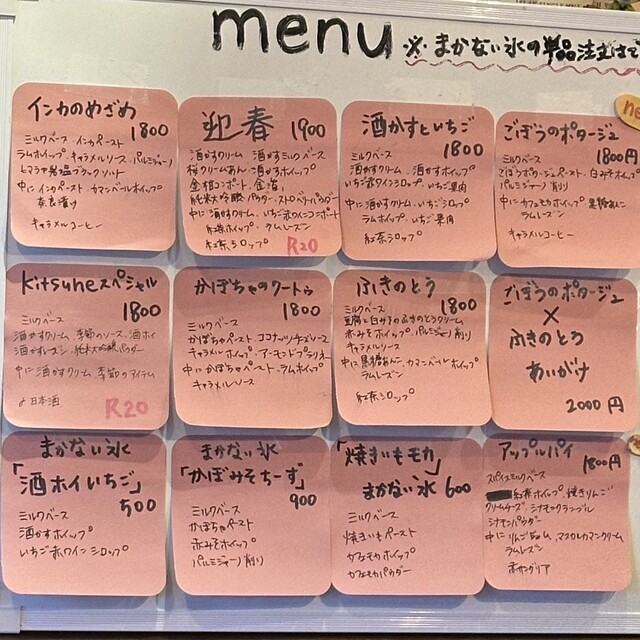 menu
※まかない氷の単品注文はできません
インカのめざめ
1800
ミルクベース インカペースト
ラムホイップ キャラメルソース パルミジャーノ
ヒマラヤ岩塩ブラックソルト
中に インカペースト カマンベールホイップ
奈良漬け
キャラメルコーヒー
迎春 1900
酒かすクリーム 酒かすミルクベース
桜クリームあん 酒かすホイップ
金柑コンポート 金箔
純米大吟醸パウダー ストロベリーパウダー
中に 酒かすクリーム いちご赤ワインコンポート
紅茶ホイップ ラムレーズン
紅茶シロップ
R20
酒かすといちご
ミルクベース
1800
酒かすクリーム 酒かすホイップ
いちご赤ワインシロップ いちご果肉
中に 酒かすクリーム いちごシロップ
ラムホイップ いちご果肉
紅茶シロップ
ne
ごぼうのポタージュ
ミルクベース
1800円
ごぼうポタージュペースト 白みそホイップ
パルミジャーノ削り
中に カフェモカホイップ 黒糖あんこ
ラムレーズン
キャラメルコーヒー
Kitsuneスペシャル
ミルクベース
1800
酒かすクリーム 季節のソース 酒ホイ
酒かすレーズン 純米大吟醸パウダー
中に 酒かすクリーム 季節のアイテム
日本酒
R20
かぼちゃのクートゥ
1800
ミルクベース
かぼちゃペースト ココナッツチーズソース
キャラメルホイップ アーモンドプラリネ
中に かぼちゃペースト ラムホイップ
キャラメルソース
ふきのとう
ミルクベース
1800
豆腐と白みそのふきのとうクリーム
赤みそホイップ パルミジャーノ削り
キャラメルソース
中に 黒糖あんこ カマンベールホイップ
ラムレーズン
紅茶シロップ
ごぼうのポタージュ
×
ふきのとう
あいがけ
2000円
まかない氷
「酒ホイいちご」
500
ミルクベース
酒かすホイップ
いちご赤ワインシロップ
まかない氷
「かぼみそちーず」
900
ミルクベース
かぼちゃペースト
赤みそホイップ
パルミジャーノ削り
「焼きいもモカ」
まかない氷 600
ミルクベース
焼きいもペースト
カフェモカホイップ
カフェモカパウダー
アップルパイ
1800円
スパイスミルクベース
紅茶ホイップ 焼きりんご
クリームチーズ シナモンクランブル
シナモンパウダー
中に りんごジャム マスカルポンクリーム
ラムレーズン
赤サングリア